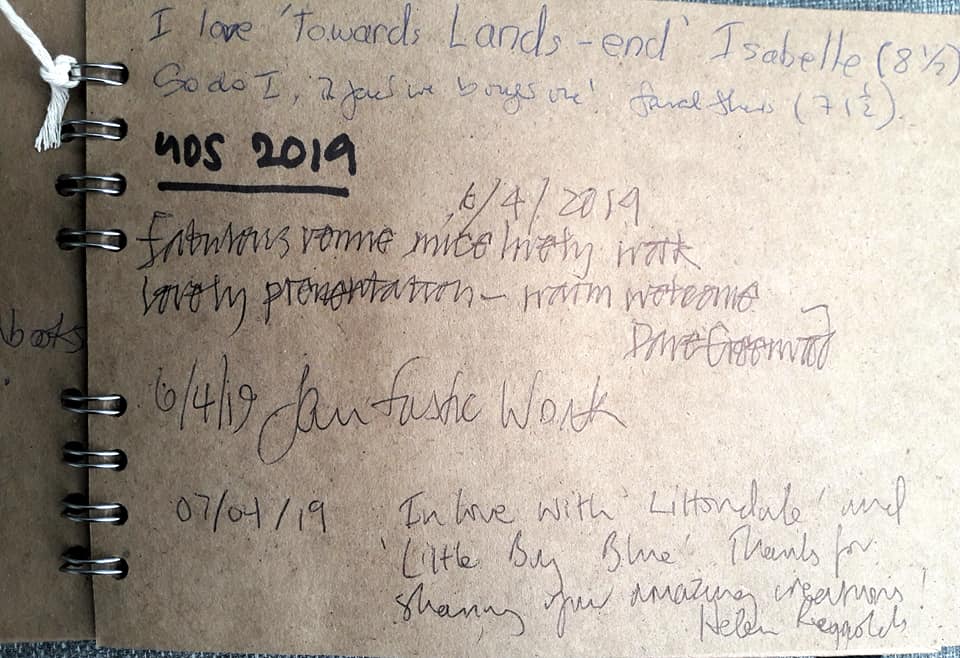 I love 'Towards Lands-end' Isabelle (8 1/2)
So do I, (71 1/2).
YDS 2019
6/4/2019
Fabulous venue nice lively work
lovely presentation - warm welcome
Dave
6/4/19 Fantastic Work
07/04/19 In love with 'Littondale' and
'Little Boy Blue' Thanks for
sharing your amazing creations!
Helen
books